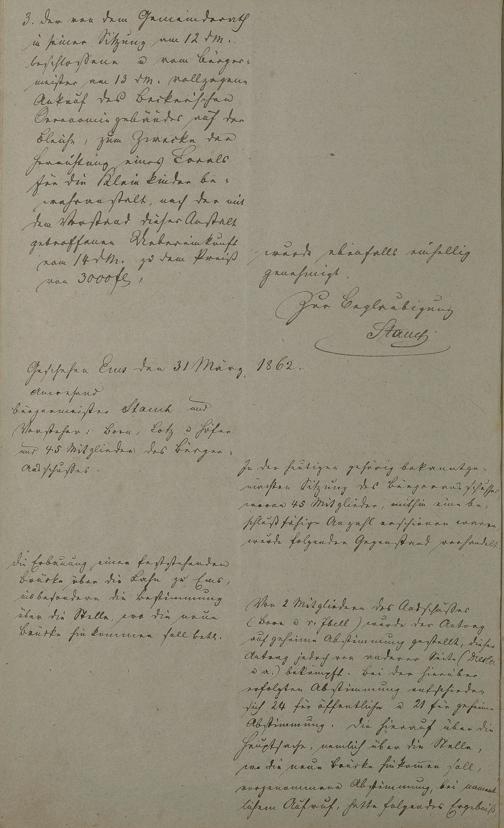 3. der von dem Gemeinderath
in seiner Sitzung am 12 d.M.
beschlossene u vom Bürger-
meister am 13 d.M. vollzogene
Ankauf des Becker'schen
Oeconomiegebäudes auf der
Bleiche, zum Zwecke der
Herrichtung eines Locals
für die Kleinkinder be-
wahranstalt, nach der mit
dem Vorstand dieser Anstalt
getroffenen Uebereinkunft
vom 14 d.M. zu dem Preiß
von 3000 fl,
wurde ebenfalls einhellig
genehmigt.
Zur Beglaubigung
Geschehen Ems den 31 März 1862.
Anwesend
Bürgermeister und
Vorsteher: Born, Lotz u Höfer
und 45 Mitglieder des Bürger-
Ausschußes.
In der heutigen gehörig bekanntge-
machten Sitzung des Bürgerausschußes
waren 45 Mitglieder, mithin eine be-
schlußfähige Anzahl erschienen waren
wurde folgender Gegenstand verhandelt
Die Erbauung einer feststehenden
Brücke über die Lahn zu Ems,
insbesondere die Bestimmung
über die Stelle, wo die neue
Brücke hinkommen soll betr.
Von 2 Mitgliedern des Ausschußes
(Born u ) wurde der Antrag
auf geheime Abstimmung gestellt, dieser
Antrag jedoch von anderer Seite
u a.) bekämpft. Bei der hierüber
erfolgten Abstimmung entschieden
sich 24 für öffentliche u 21 für geheime
Abstimmung. Die hierauf über die
Hauptsache, nemlich über die Stelle,
wo die neue Brücke hinkommen soll,
vorgenommene Abstimmung, bei nament
lichem Aufruf, hatte folgendes Ergebniß